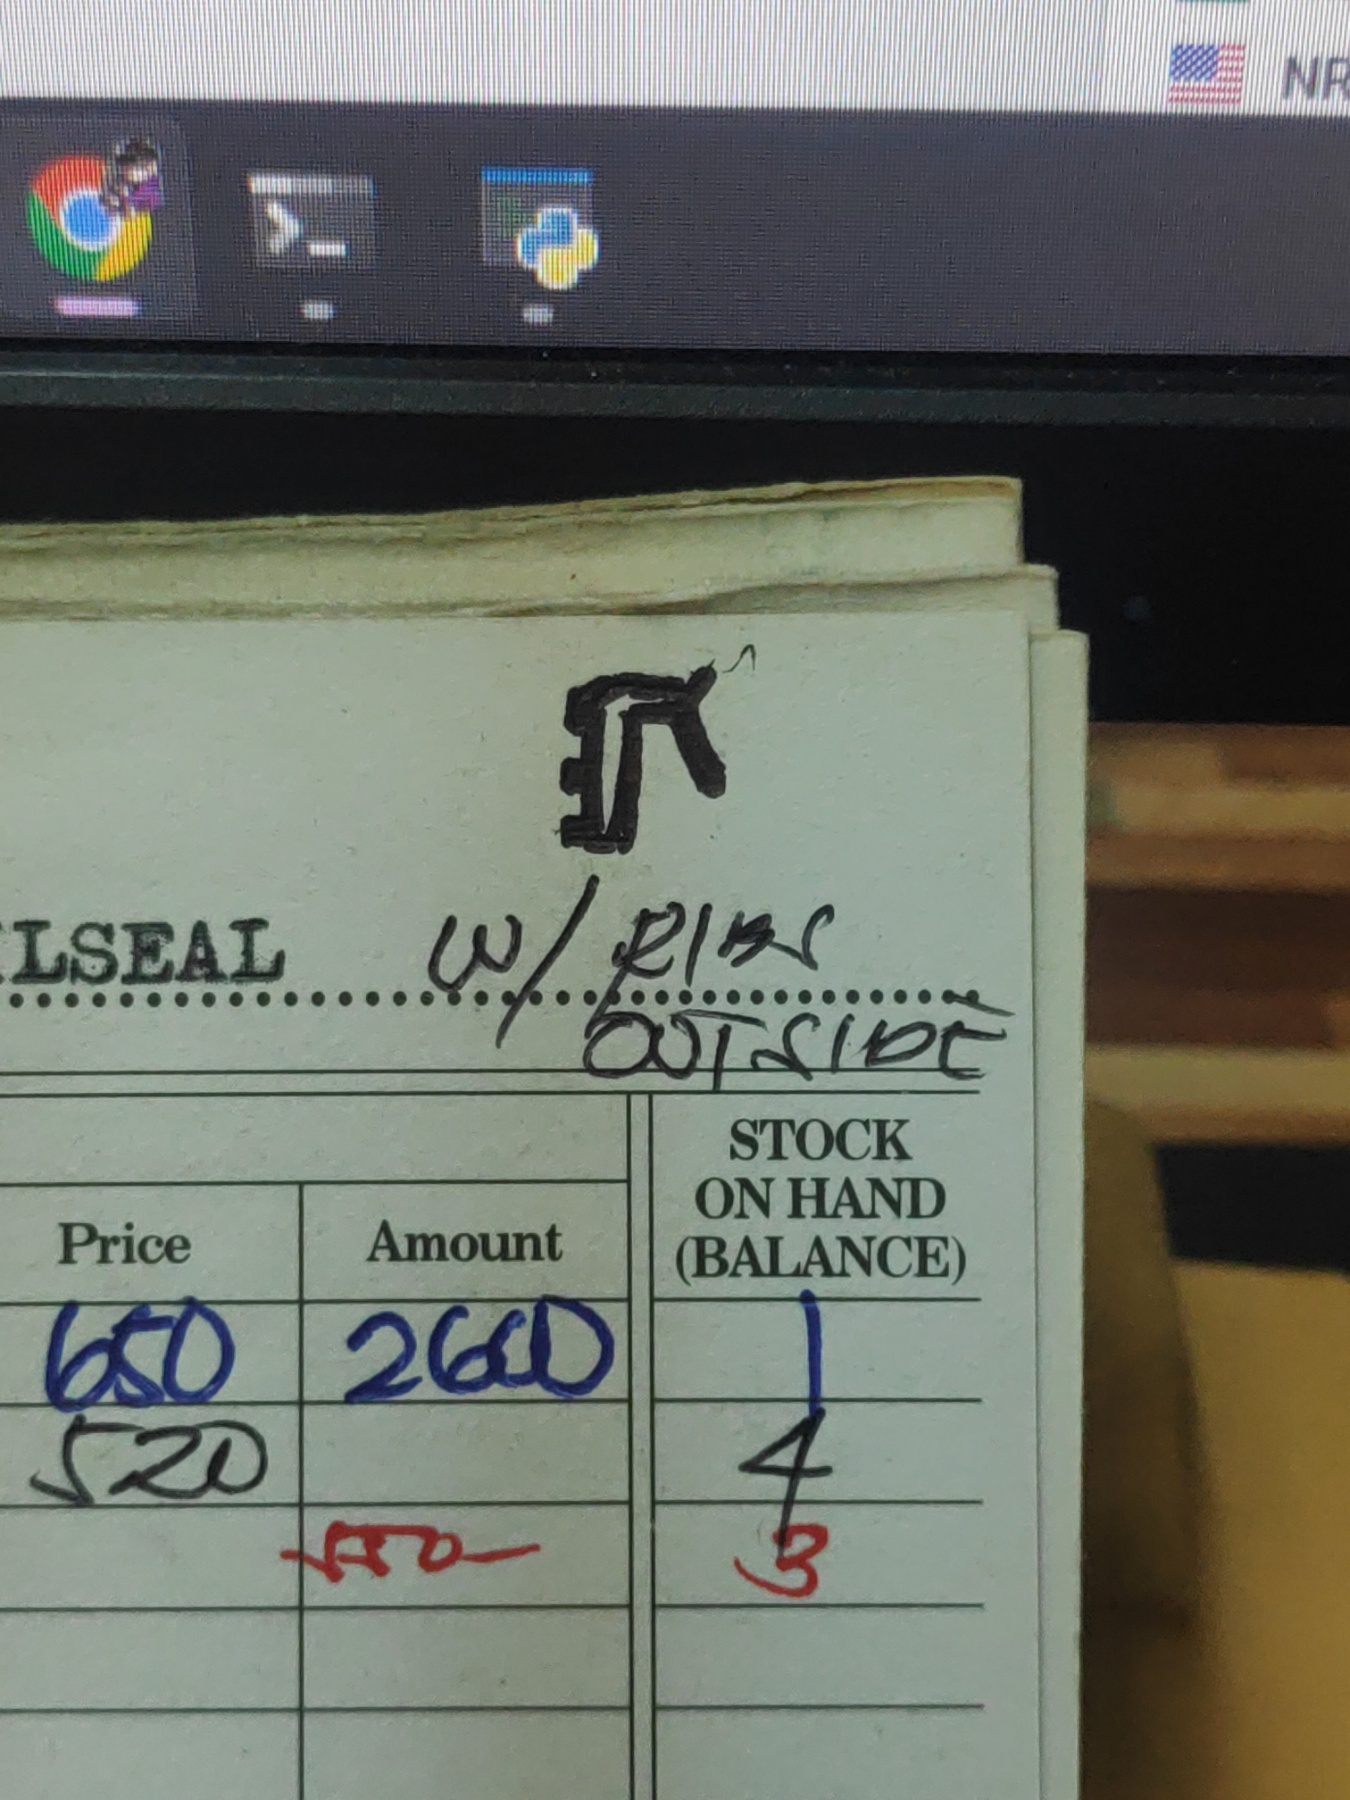 NR
LSEAL W/ RIBS
OUTSIDE
Price Amount STOCK
ON HAND
(BALANCE)
650 2600 1
520 4
550- 3